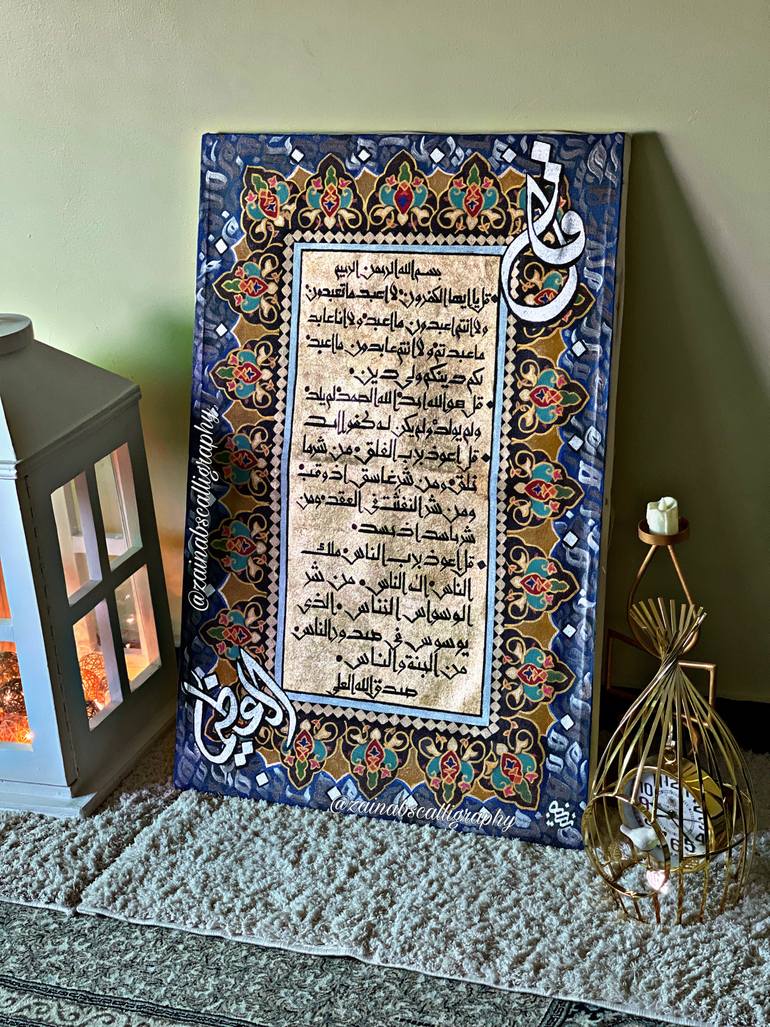 بسم الله الرحمن الرحيم
قل يا ايها الكفرون لا اعبد ما تعبدون
ولا انتم اعبدون ما اعبد ولا انا عابد
ما عبدتم ولا انتم عابدون ما اعبد
لكم دينكم ولي دين
قل هو الله احد الله الصمد لم يلد
ولم يولد ولم يكن له كفوا احد
قل اعوذ برب الفلق من شر ما
خلق ومن شر غاسق اذ وقب
ومن شر النفثت في العقد ومن
شر حاسد اذ حسد
قل اعوذ برب الناس ملك
الناس اله الناس من شر
الوسواس الخناس الذي
يوسوس في صدور الناس
من الجنة والناس
صدق الله العلي
@zainabscalligraphy
@zainabscalligraphy